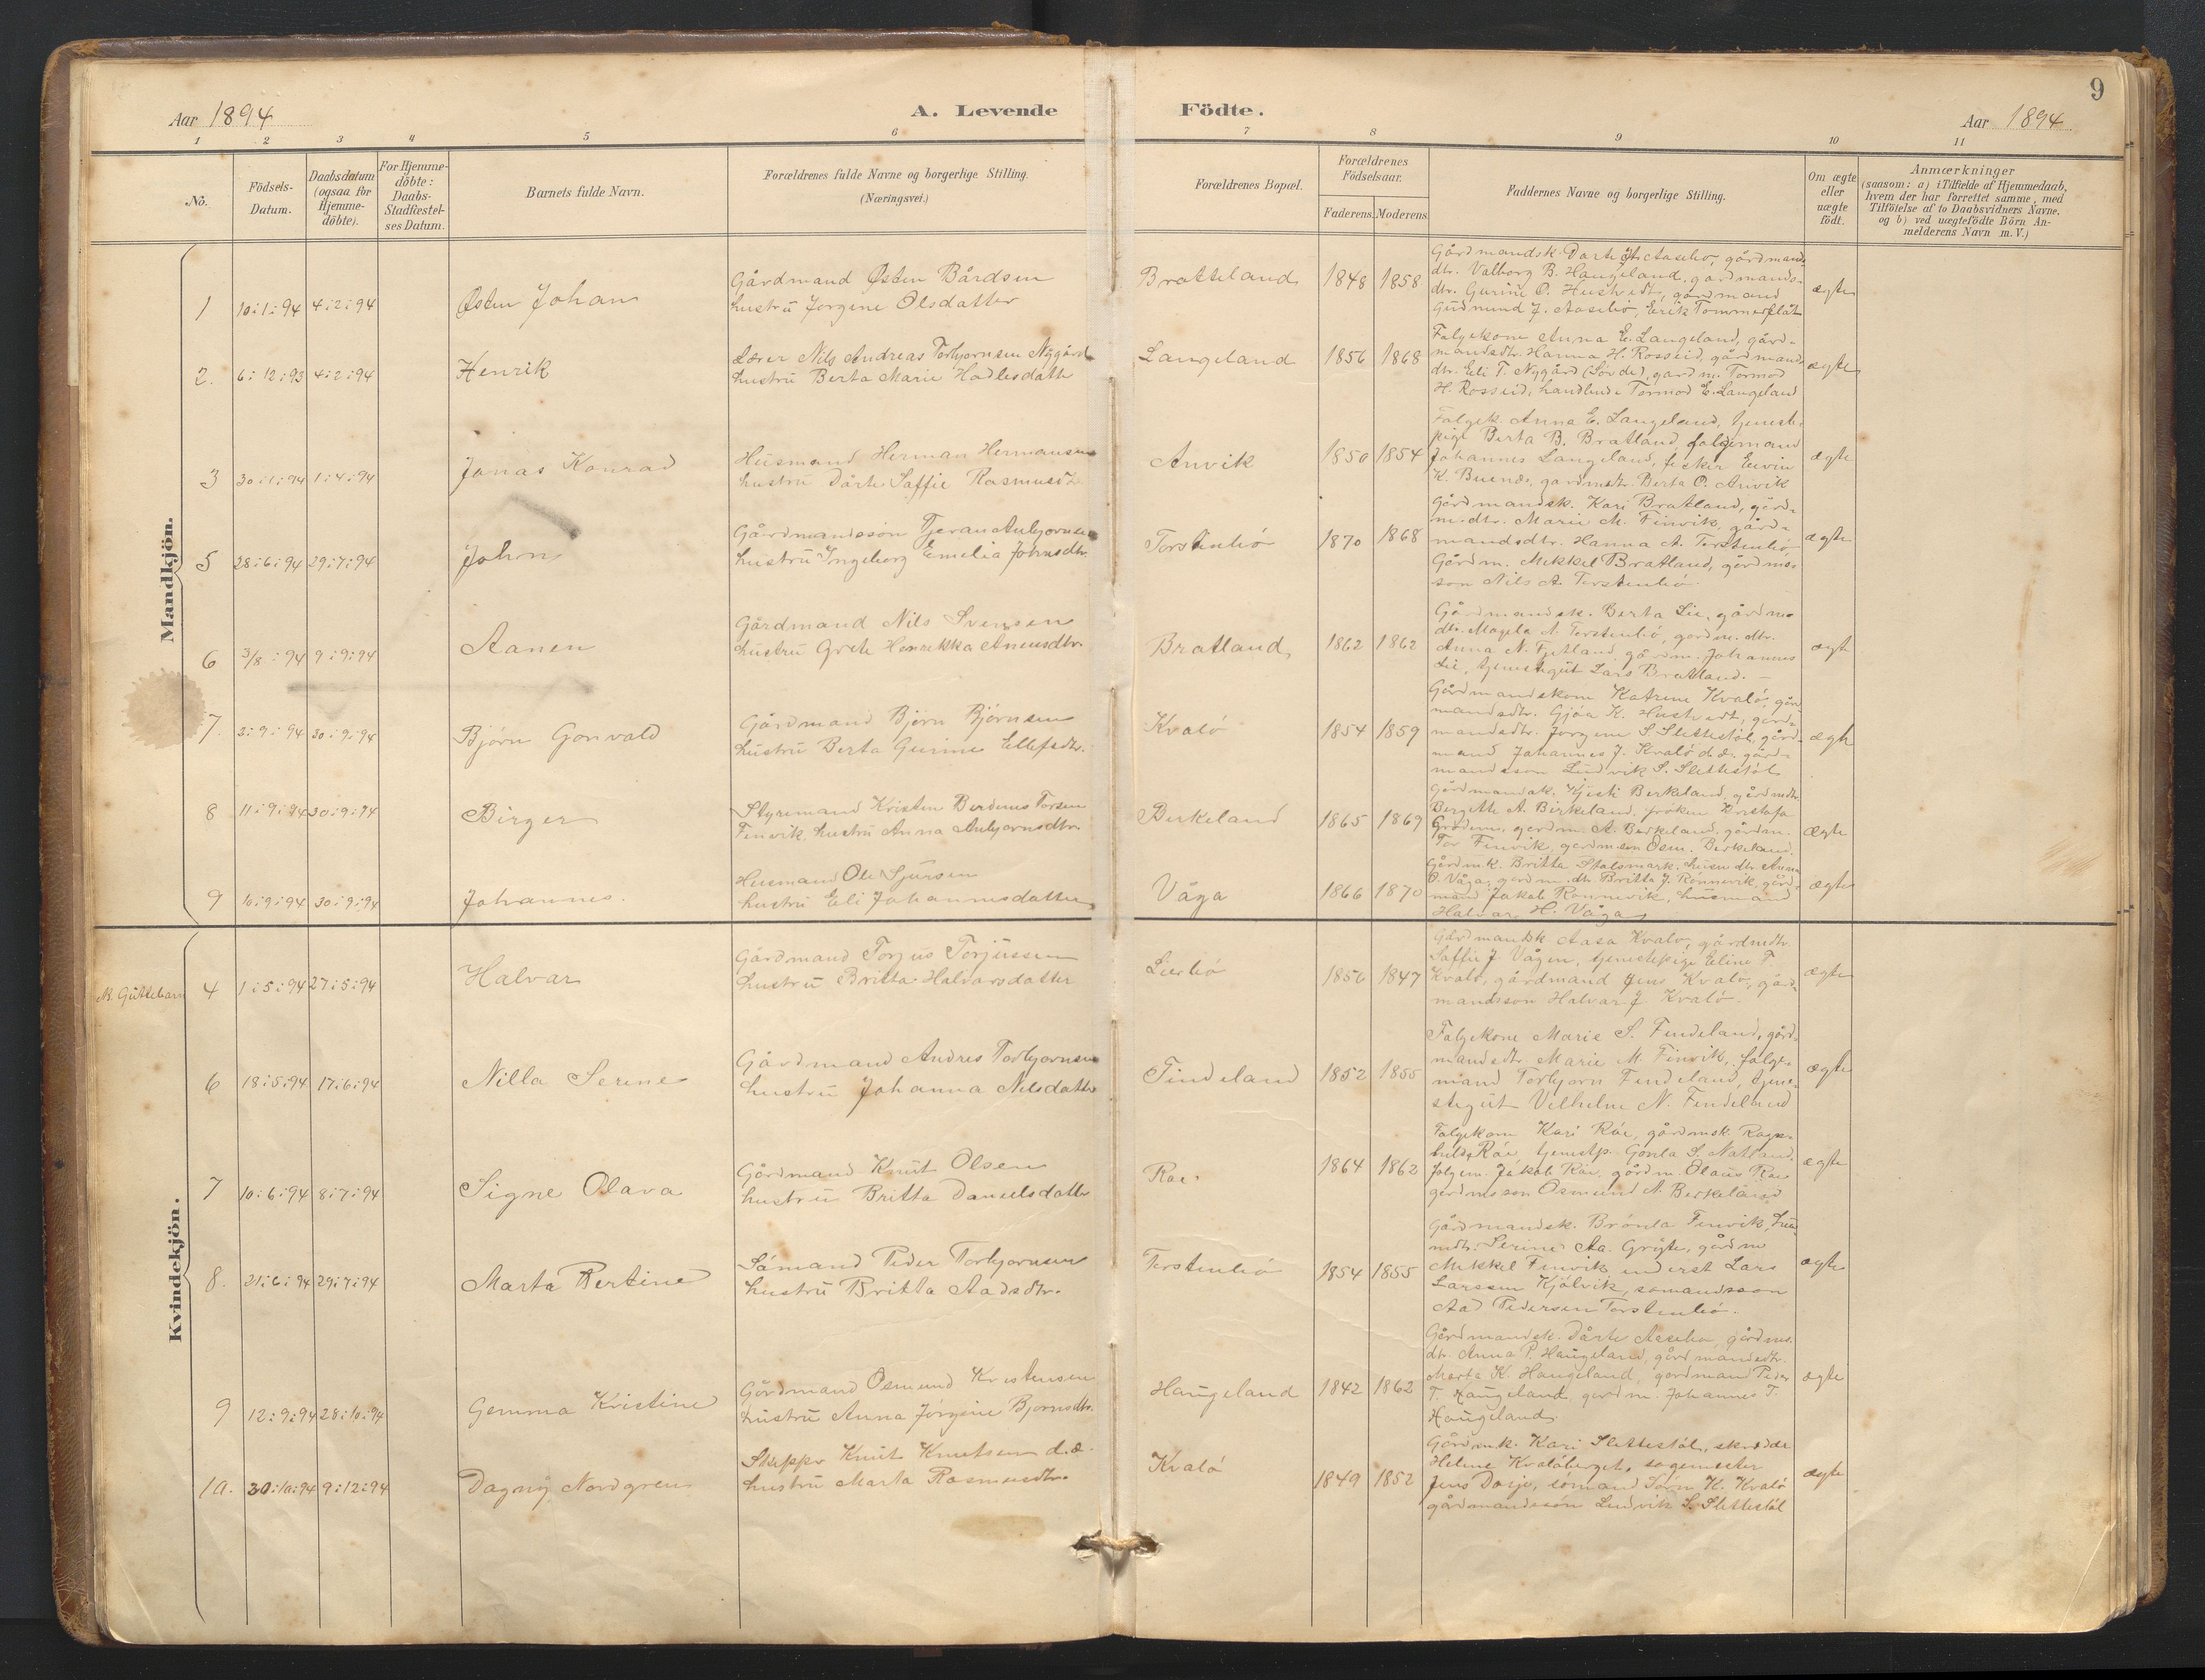 9
Aar 1894
A. Levende Födte.
Aar 1894
1 2 3 4 5 6 7 8 9 10 11
No.
Födsels-Datum.
Daabsdatum (ogsaa for Hjemme-döbte).
For Hjemme-döbte: Daabs-Stadfæstel-ses Datum.
Barnets fulde Navn.
Forældrenes fulde Navne og borgerlige Stilling.
(Næringsvei.)
Forældrenes Bopæl.
Forældrenes Födselsaar.
Faderens. Moderens.
Faddernes Navne og borgerlige Stilling.
Om ægte eller uægte födt.
Anmærkninger
(saasom: a) i Tilfælde af Hjemmedaab,
hvem der har forrettet samme, med
Tilföielse af to Daabsvidners Navne,
og b) ved uægtefödte Börn An-
melderens Navn m. V.)
Mandkjön.
1 10:1:94 4:2:94 Østen Johan
Gårdmand Østen Bårdsen
hustru Jorgine Olsdatter
Bratteland 1848 1858
Gårdmandsk. Dorte Aaselio, gårdmands
dtr. Valborg B. Haugeland, gardmands-
dtr. Gurine O. Hustvedt, gårdmand
Gudmund J. Aaselio, Erik Tommerflåt
ægte
2. 6:12:93 4:2:94 Henrik
Lærer Nils Andreas Torbjornsen Nygård
hustru Berta Marie Hadlesdatte
Langeland 1856 1868
Folgekone Anna E. Langeland, gård-
mandsdtr. Hanna H. Rosseid, gårdmands
dtr. Eli T. Nygård (Sövde), gardm. Tormod
H. Rosseid, handlende Tormod E. Langeland
ægte
3 30:1:94 1:4:94 Jonas Konrad
Husmand Herman Hermansen
hustru Dårte Saffie Rasmusd.
Anvik 1850 1854
Folgek. Anna E. Langeland, tjeneste-
pige Berta B. Bratland, folgemand
Johannes Langeland, fisker Eervin
K. Buende, gardmdtr. Berta O. Anvik
ægte
5 28:6:94 29:7:94 John
Gårdmandsson Tjeran Anbjornsen
hustru Ingeborg Emelia Johnsdtr.
Torstenbö 1870 1868
Gårdmandsk. Kari Bratland, gård-
m.dtr. Marie M. Finvik, gård-
mandsdtr. Hanna A. Torstenbö
Gårdm. Mikkel Bratland, gårdms-
son Nils A. Torstenbö.
ægte
6 3/8:94 9:9:94 Aanen
Gårdmand Nils Svensen
hustru Grete Henrikka Anensdtr.
Bratland 1862 1862
Gårdmandsk. Berta Lie, gårdms
dtr. Magela A. Torstenbö, gardm. dtr.
Anna N. Fjetland, gårdm. Johannes
Lie, tjenestegut Lars Bratland.
ægt
7. 2:9:94 30:9:94 Björn Gonvald
Gårdmand Björn Björnsen
hustru Berta Gurine Ellefsdtr.
Kvalö 1854 1859
Gårdmandskone Katrine Kvalö, går
mandsdtr. Gjöa K. Hustvedt, gård-
mandsdtr. Jorgine S. Slettestöl, gård-
mand Johannes J. Kvalö d.æ. gård-
mandsson Ludvik S. Slettestöl
ægte
8 11:9:94 30:9:94 Birger
Styremand Kristen Berdenes Torsen
Finvik, hustru Anna Anbjornsdtr.
Berkeland 1865 1869
Gårdmandsk. Kjesti Berkeland, gårdmdtr.
Bergitte A. Birkeland, fröken Kristofa
Grödem, gårdm. A. Berkeland, gårdm.
Tor Finvik, gardmson Osm. Berkeland.
ægte
9 10:9:94 30:9:94 Johannes.
Husmand Ole Sjursen
hustru Eli Johannesdatter
Våga 1866 1870
Gårdmk. Britta Stalsmark, husm dtr Anna
O. Våga, gardm. dtr Britta J. Rönnevik, gård-
mand Jakob Rönnevik, husmand
Halvar H. Våga
ægte
Kvindekjön.
N. Guttebarn 4 1:5:94 27:5:94 Halvar
Gårdmand Torjus Torjussen
hustru Britta Halvarsdatter
Lierbö 1850 1847
Gårdmandsk Aasa Kvalö, gårdmdtr
Saffie J. Vågen, tjenestepige Eline T.
Kvalö, gårdmand Jens Kvalö, gård-
mandsson Halvar J Kvalö.
ægte
6 18:5:94 17:6:94 Nilla Serine
Gårdmand Andres Torbjornsen
hustru Johanna Nelsdatter
Findeland 1852 1855
Folgekone Marie S. Findeland, gård-
mandsdtr. Marie M. Finvik, folge-
mand Torbjorn Findeland, tjene-
stegut Vilhelm N. Findeland
ægte
7 10:6:94 8:7:94 Signe Olava
Gårdmand Knut Olsen
hustru Britta Danielsdatter
Råe. 1864 1862
Folgekone Kari Råe, gårdmsk. Ragn-
hild Råe, tjenestp. Gonla S. Natland,
folgem. Jakob Råe, gårdm. Olaus Råe
gårdmsson Osmund A. Berkeland
ægte
8. 21:6:94 29:7:94 Marta Bertine
Sömand Peder Torbjornsen
hustru Britta Aadsdtr.
Torstenbö 1854 1855
Gårdmandsk. Brönla Finvik, hus
mdtr. Serine Aa. Gryte, gårdm
Mikkel Finvik, inderst Lars
Larssen Kjölvik, sömandsson
Aad Pedersen Torstenbö.
ægte
9 12:9:94 28:10:94 Gemma Kristine
Gårdmand Osmund Kristensen
hustru Anna Jörgine Bjornsdtr.
Haugeland 1842 1862
Gårdmandsk. Dårte Aaselio, gårdms.
dtr. Anna P. Haugeland, gårdmandsdtr.
Marta K. Haugeland, gardmand Peder
T. Haugeland, gardm. Johannes T.
Haugeland.
ægte
10. 30:10:94 9:12:94 Dagny Nordgren
Skipper Knut Knutsen d.æ.
hustru Marta Rasmusdtr.
Kvalö 1849 1852
Gårdmk. Kari Slettestöl, skrædder
Helene Kvalöberget, sogemester
Jens Dosje, sömand Sörn K. Kvalö
gårdmandsson Ludvik S. Slettestöl
ægte